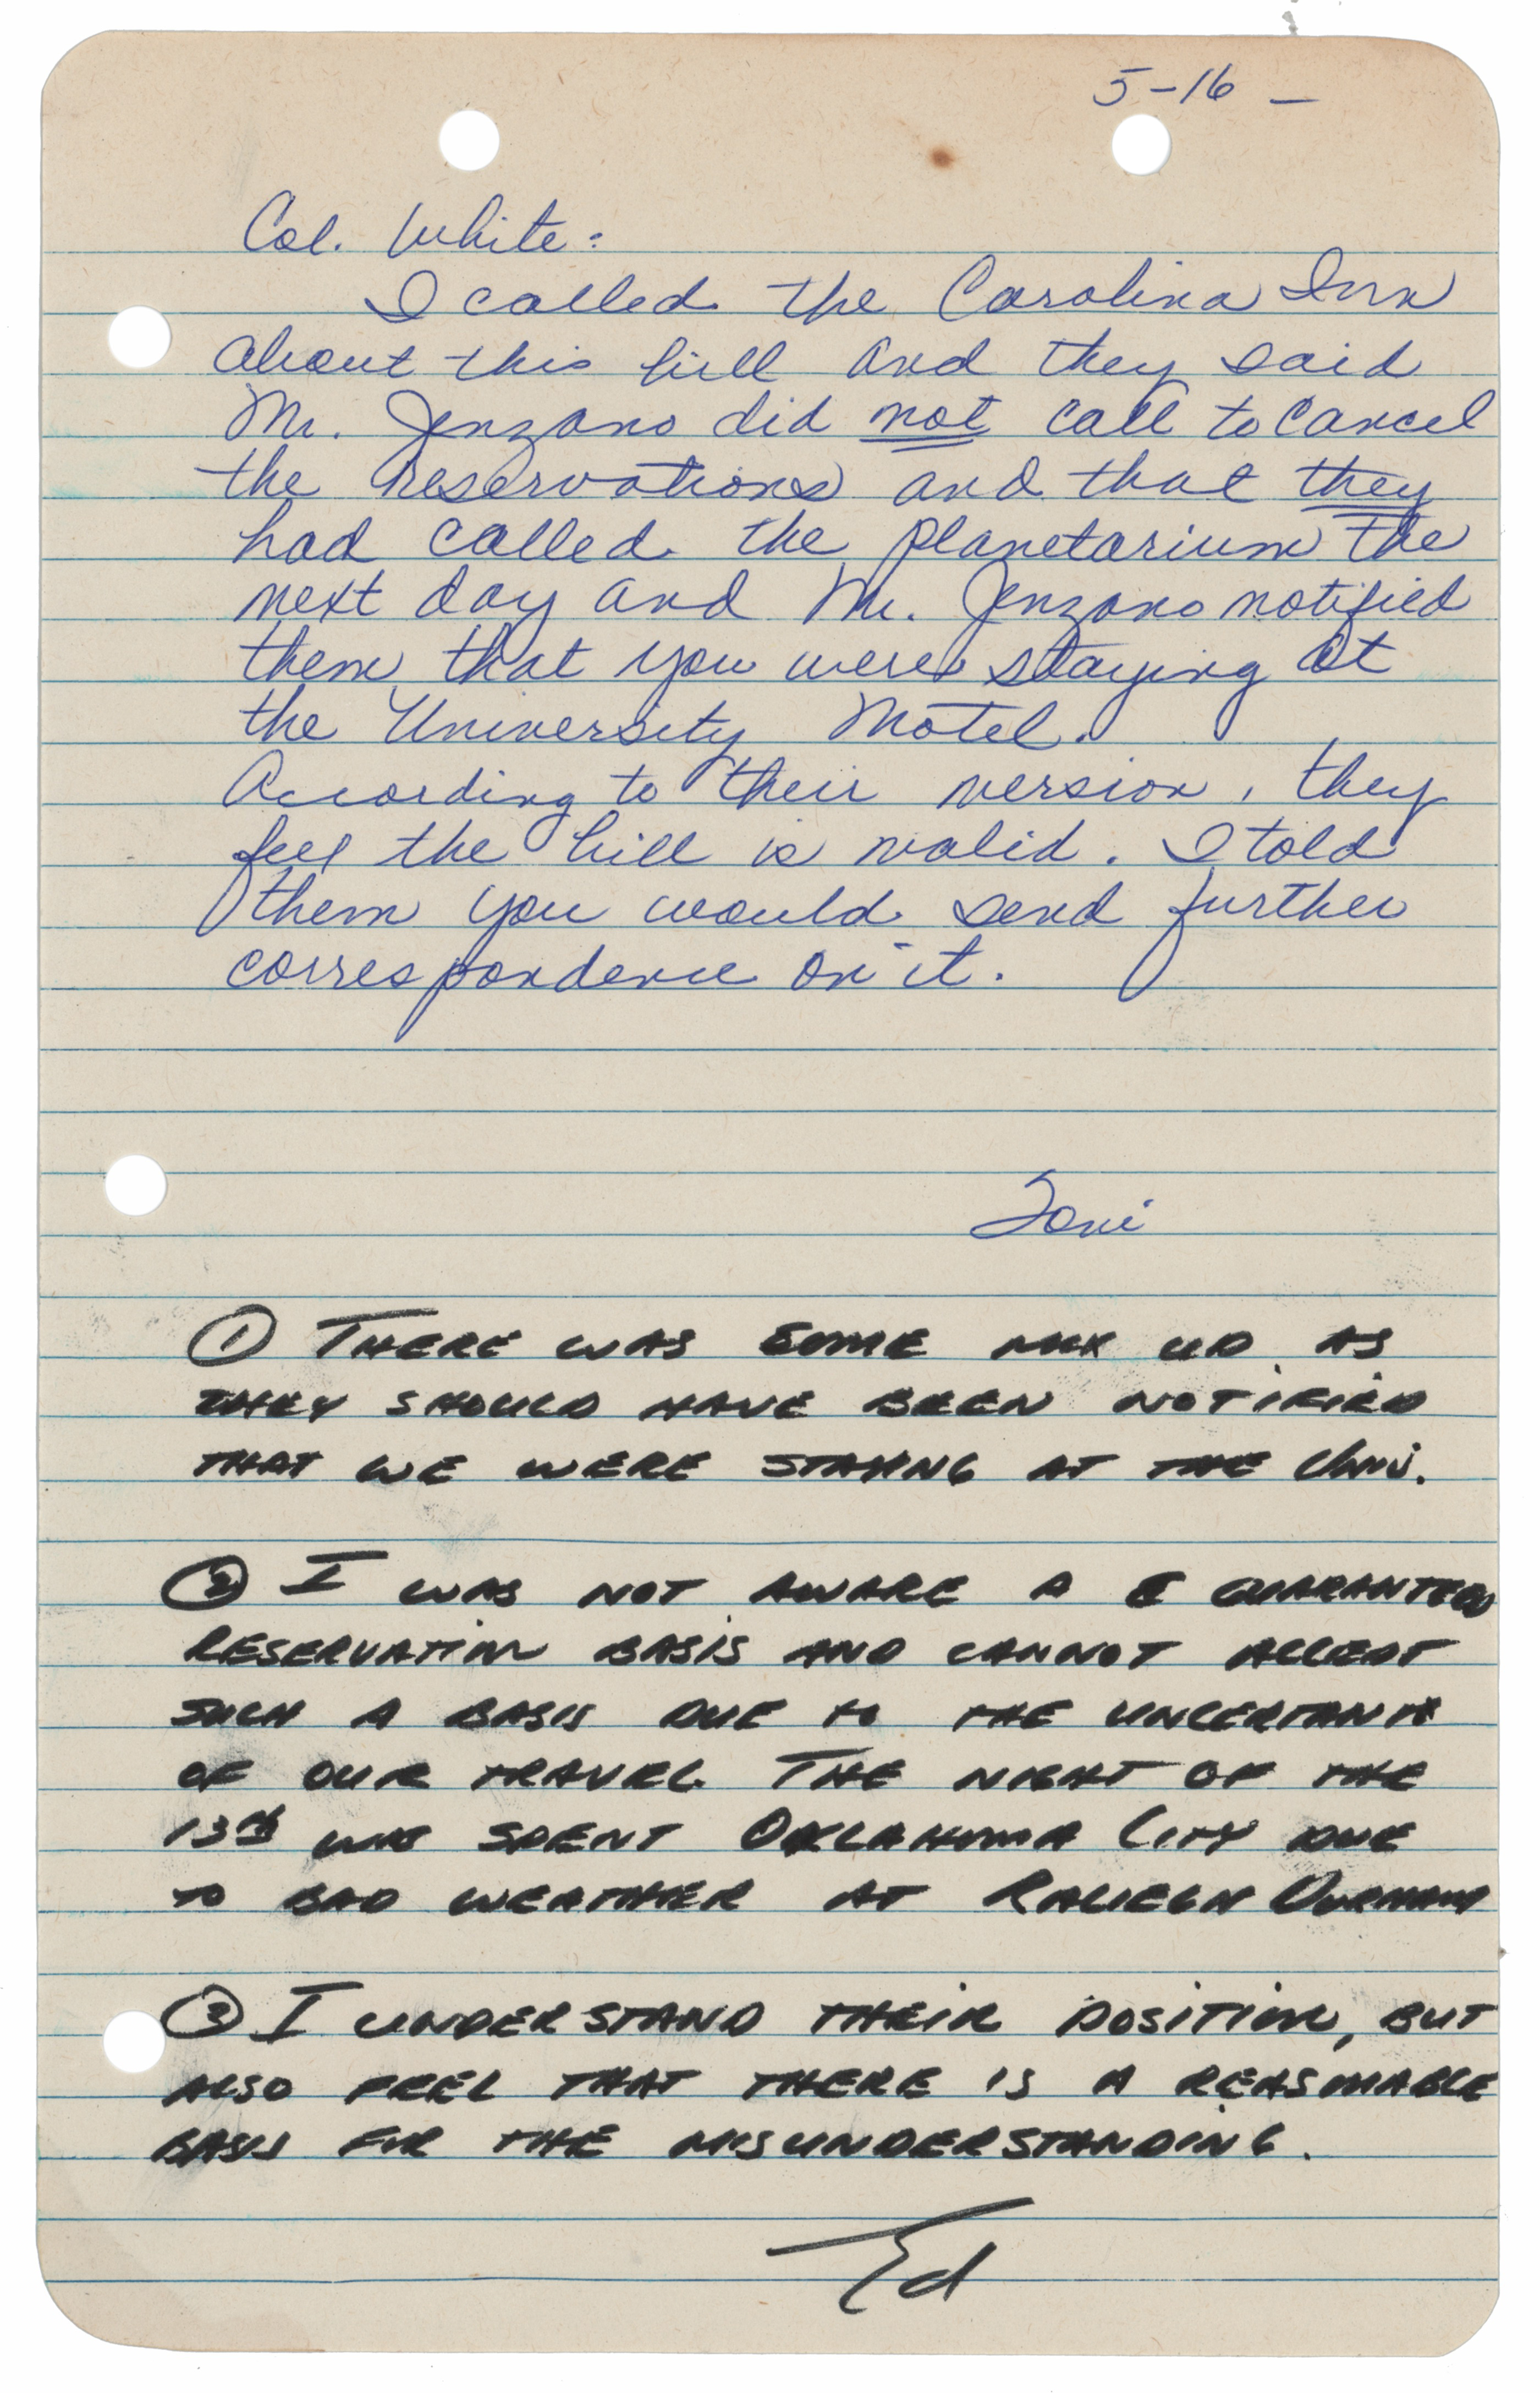 5-16 —
Col. White:
I called the Carolina Inn
about this bill and they said
Mr. Jenzano did not call to cancel
the reservations and that they
had called the planetarium the
next day and Mr. Jenzano notified
them that you were staying at
the University Motel.
According to their version, they
feel the bill is valid. I told
them you would send further
correspondence on it.
Toni
① THERE WAS SOME MIX UP AS
THEY SHOULD HAVE BEEN NOTIFIED
THAT WE WERE STAYING AT THE Univ.
② I WAS NOT AWARE A GUARANTEED
RESERVATION BASIS AND CANNOT ACCEPT
SUCH A BASIS DUE TO THE UNCERTANTY
OF OUR TRAVEL. THE NIGHT OF THE
13th WAS SPENT OKLAHOMA CITY DUE
TO BAD WEATHER AT RALIEGH DURHAM
③ I UNDERSTAND THEIR POSITION, BUT
ALSO FEEL THAT THERE IS A REASONABLE
BASIS FOR THE MISUNDERSTANDING.
Ed